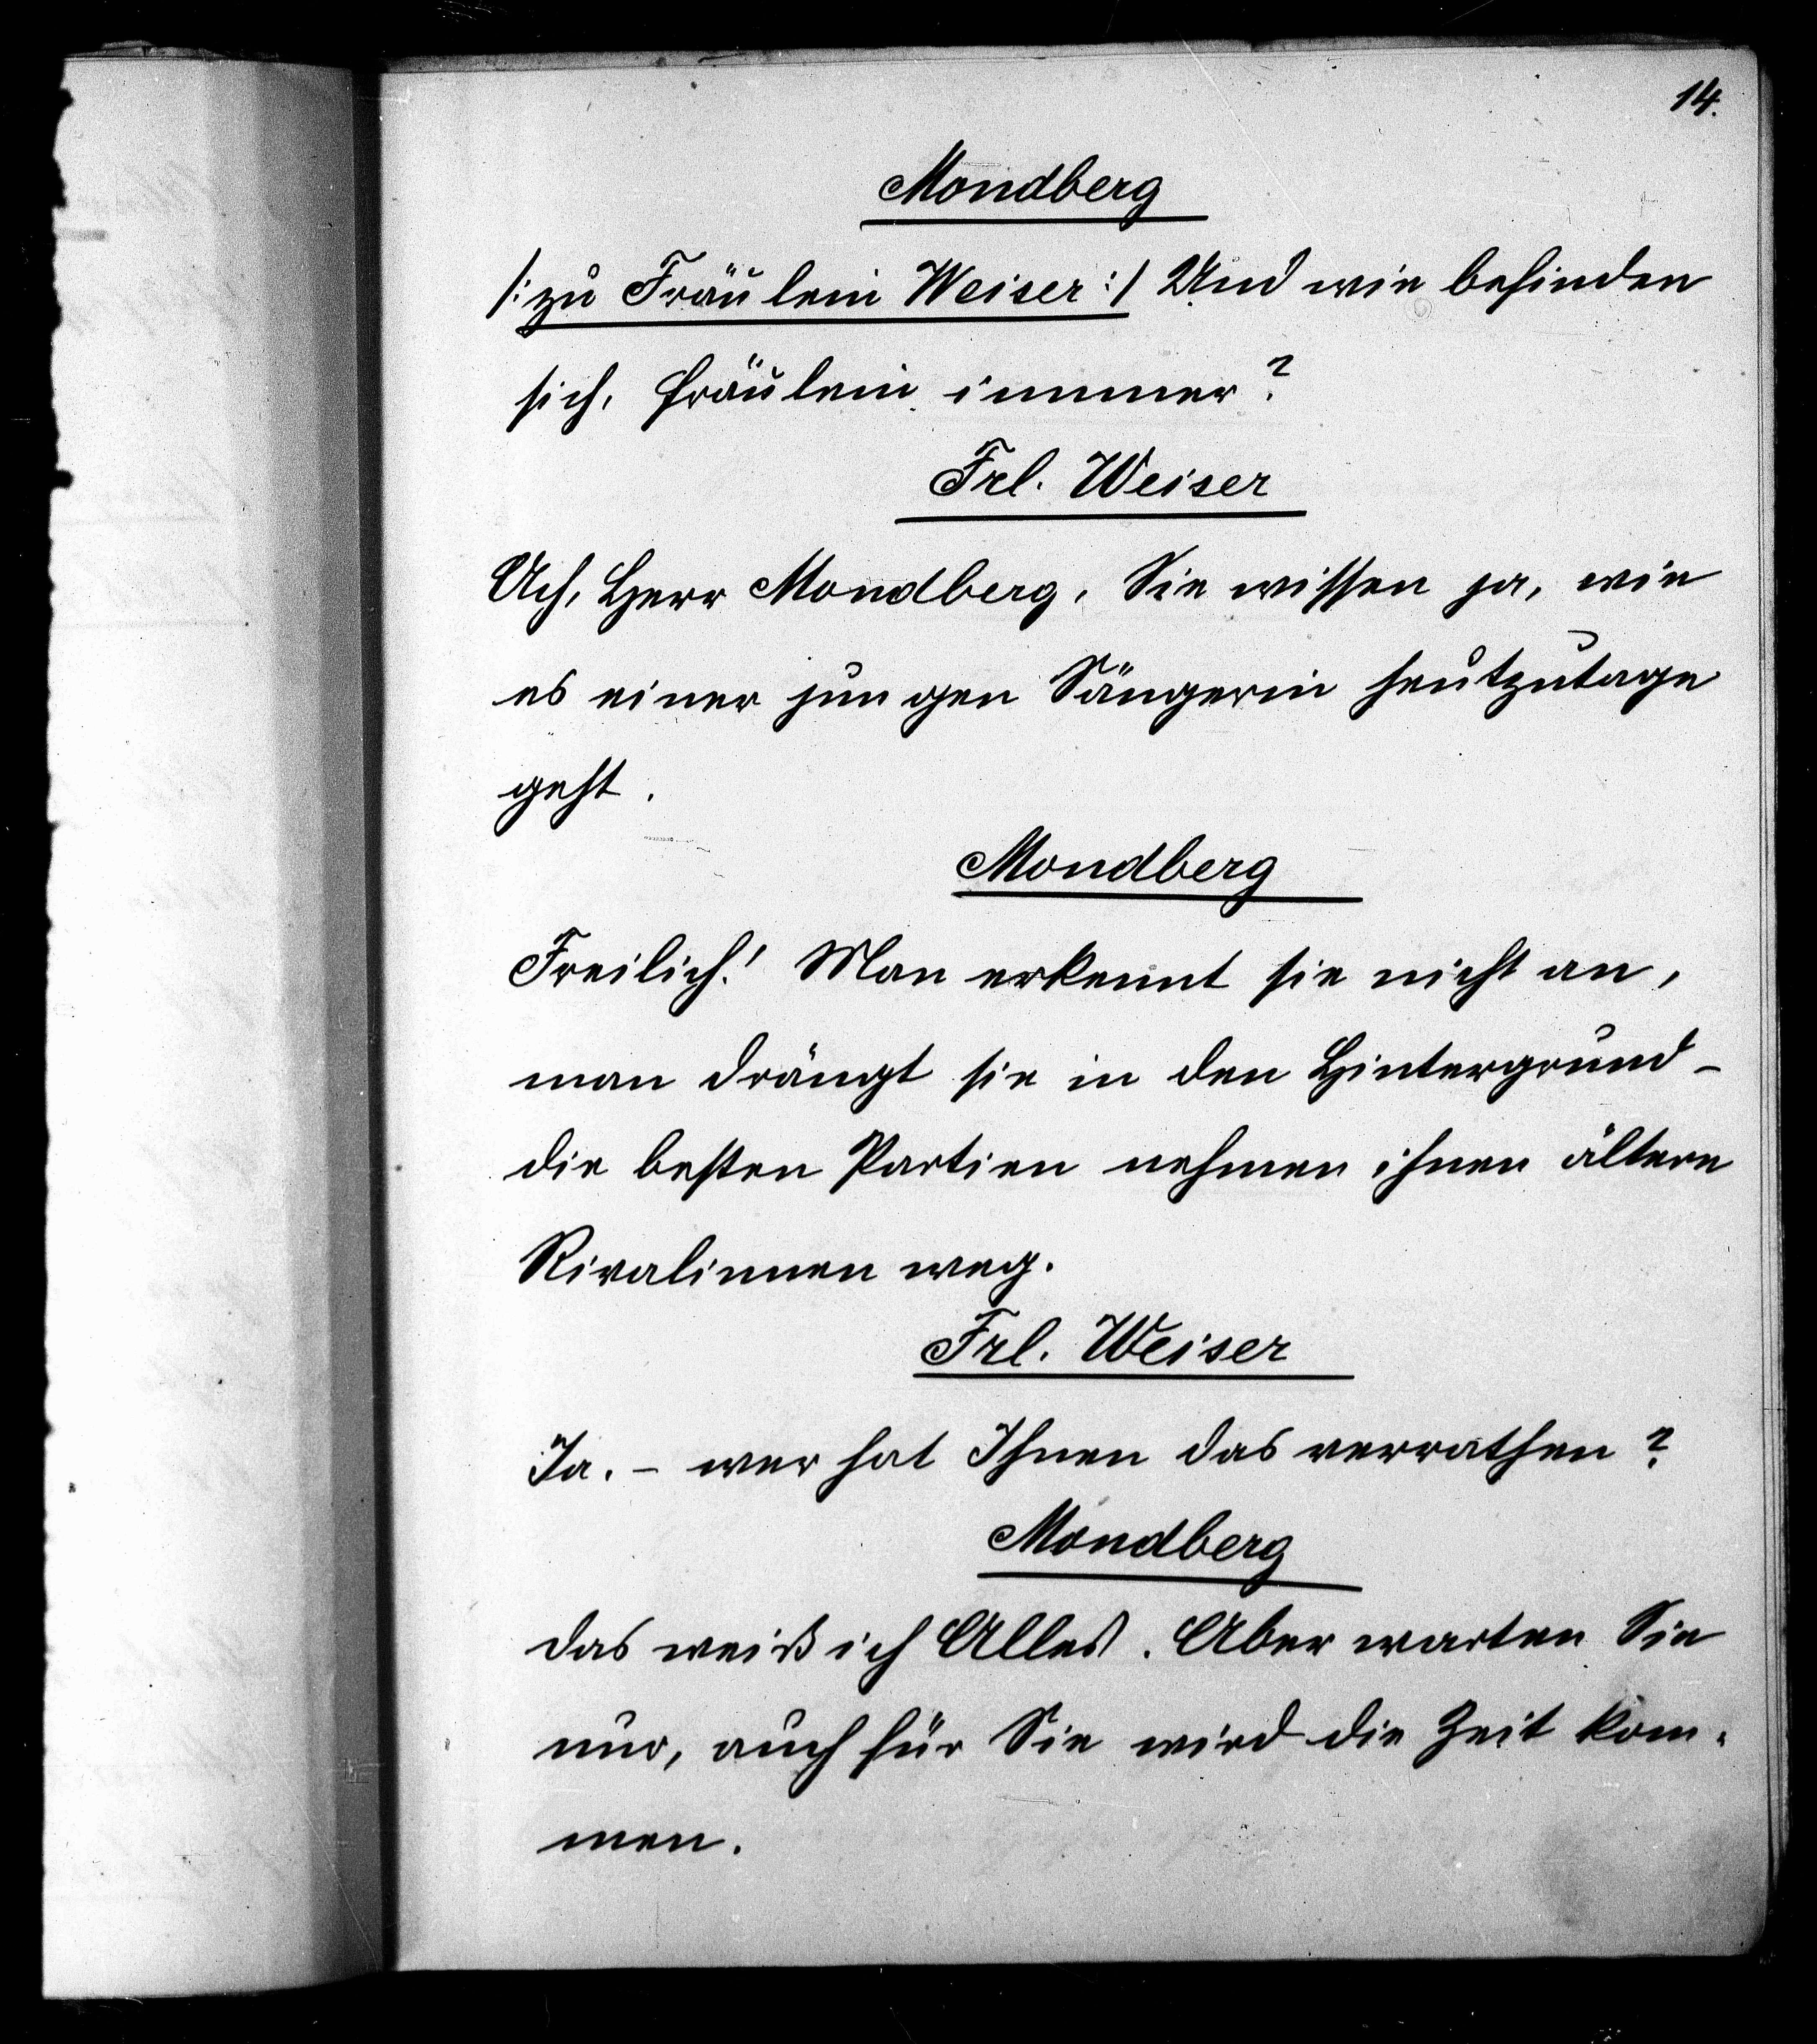 14.
Mondberg
/: zu Fräulein Weiser :/ Und wie befinden
sich, Fräulein immer?
Frl. Weiser
Ach, Herr Mondberg, Sie wissen ja, wie
es einer jungen Sängerin heutzutage
geht.
Mondberg
Freilich! Man erkennt sie nicht an,
man drängt sie in den Hintergrund –
die besten Partien nehmen ihnen ältere
Rivalinnen weg.
Frl. Weiser
Ja. – wer hat Ihnen das verrathen?
Mondberg
Das weiß ich Alles. Aber warten Sie
nur, auch für Sie wird die Zeit kom-
men.